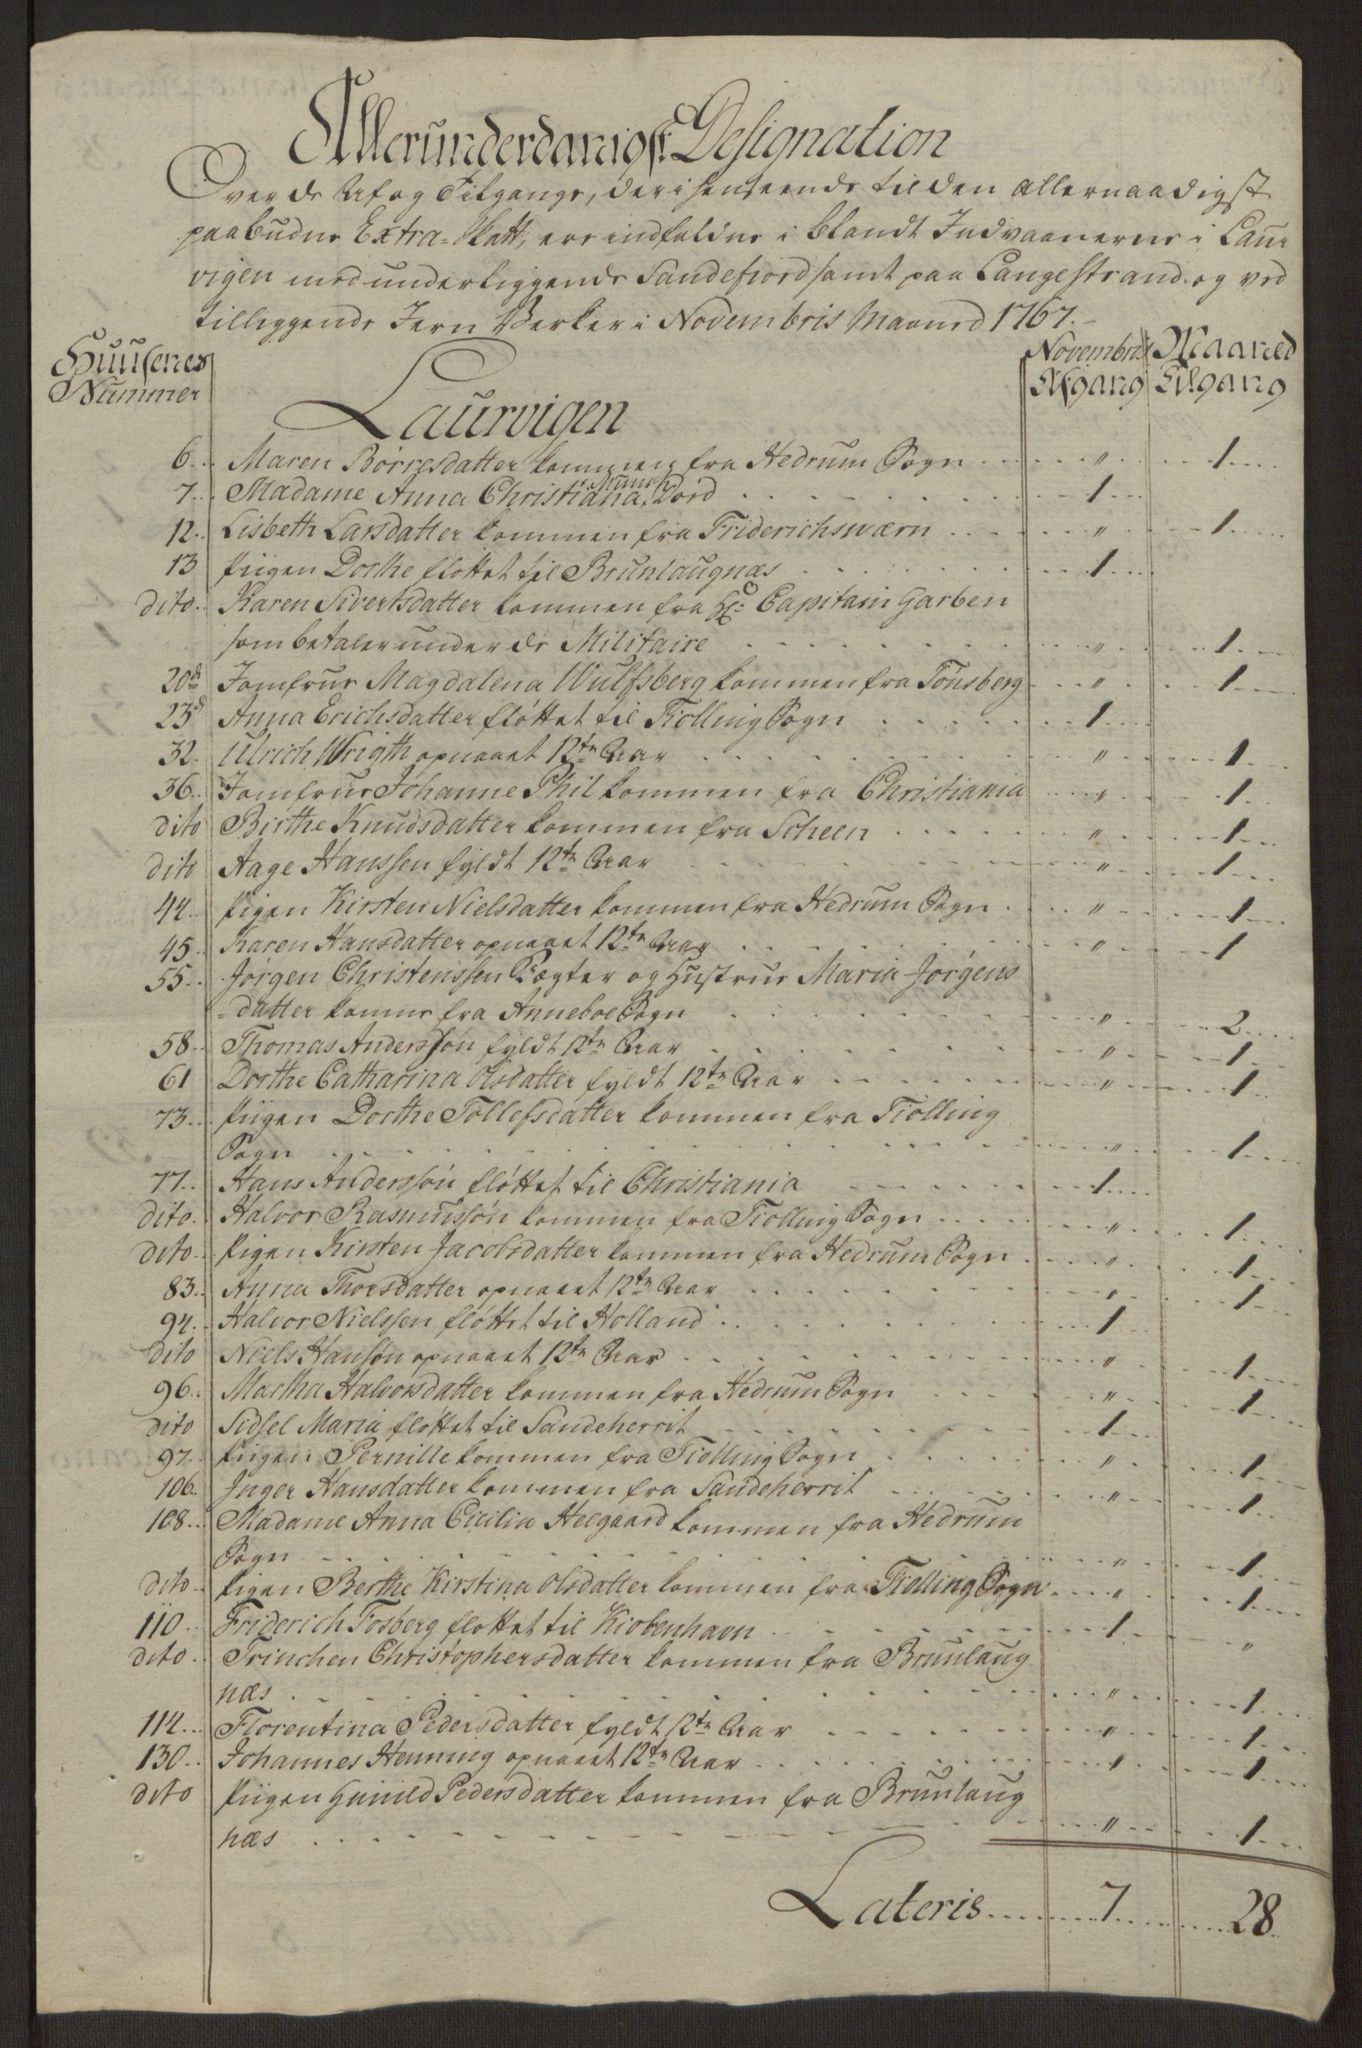 Allerunderdanigst Designation
Over de Af og Tilgange, der i henseende til den allernaadigst
paabudne Extra-Skatt, ere indfaldne i blandt Indvaanerne i Laur
vigen med underliggende Sandefiord samt paa Langestrand og ved
tilliggende Jern Verker i Novembris Maaned 1767.
Huusenes Nummer
Novembris Maaned
Afgang Tilgang
Laurvigen
6 Maren Börresdatter kommen fra Hedrum Sogn " 1
7 Madame Anna Christiana Munch Död 1
12 Lisbeth Larsdatter kommen fra Friderichswærn " 1
13 Piigen Dorthe fløttet til Brunlaugnæs 1
dito Karen Sivertsdatter kommen fra Hr Capitain Garben
som betaler under de Militaire " 1
20de Jomfrue Magdalena Wulfsberg kommen fra Tönsberg " 1
23d Anna Erichsdatter fløttet til Tiølling Sogn 1
32 Ulrich Wrigth opnaaet 12te Aar " 1
36 Jomfrue Johanne Phil kommen fra Christiania " 1
dito Birthe Knudsdatter kommen fra Scheen " 1
dito Aage Hanssen fyldt 12te Aar " 1
44 Pigen Kirsten Nielsdatter kommen fra Hedrum Sogn " 1
45 Karen Hansdatter opnaaet 12te Aar " 1
55 Jørgen Christenssen Vægter og Hustrue Maria Jørgens
datter komne fra Anneboe Sogn " 2
58 Thomas Anderssøn fyldt 12te Aar " 1
61 Dorthe Catharina Olsdatter fyldt 12te Aar " 1
73 Piigen Dorthe Tollefsdatter kommen fra Tiølling
Sogn " 1
77 Hans Anderssøn fløttet til Christiania 1
dito Halvor Rasmussøn kommen fra Tiølling Sogn " 1
dito Pigen Kirsten Jacobsdatter kommen fra Hedrum Sogn " 1
83 Anna Thorsdatter opnaaet 12te Aar " 1
94 Halvor Nielssen fløttet til Holland 1
dito Niels Hansøn opnaaet 12te Aar " 1
96 Martha Halvorsdatter kommen fra Hedrum Sogn " 1
dito Sidsel Maria fløttet til Sandeherrit 1
97 Piigen Pernille kommen fra Tiølling Sogn " 1
106 Inger Hansdatter kommen fra Sandeherrit " 1
108 Madame Anna Cicilia Heegaard kommen fra Hedrum
Sogn " 1
dito Pigen Berthe Kirstina Olsdatter kommen fra Tiølling Sogn " 1
110 Friderich Fosberg fløttet til Kiøbenhavn 1 "
dito Trinchen Christophersdatter kommen fra Brunlaug
næs " 1
114 Florentina Pedersdatter fyldt 12te Aar " 1
130 Johannes Henning opnaaet 12te Aar " 1
dito Piigen Gunild Pedersdatter kommen fra Brunlaug
næs " 1
Lateris 7 28